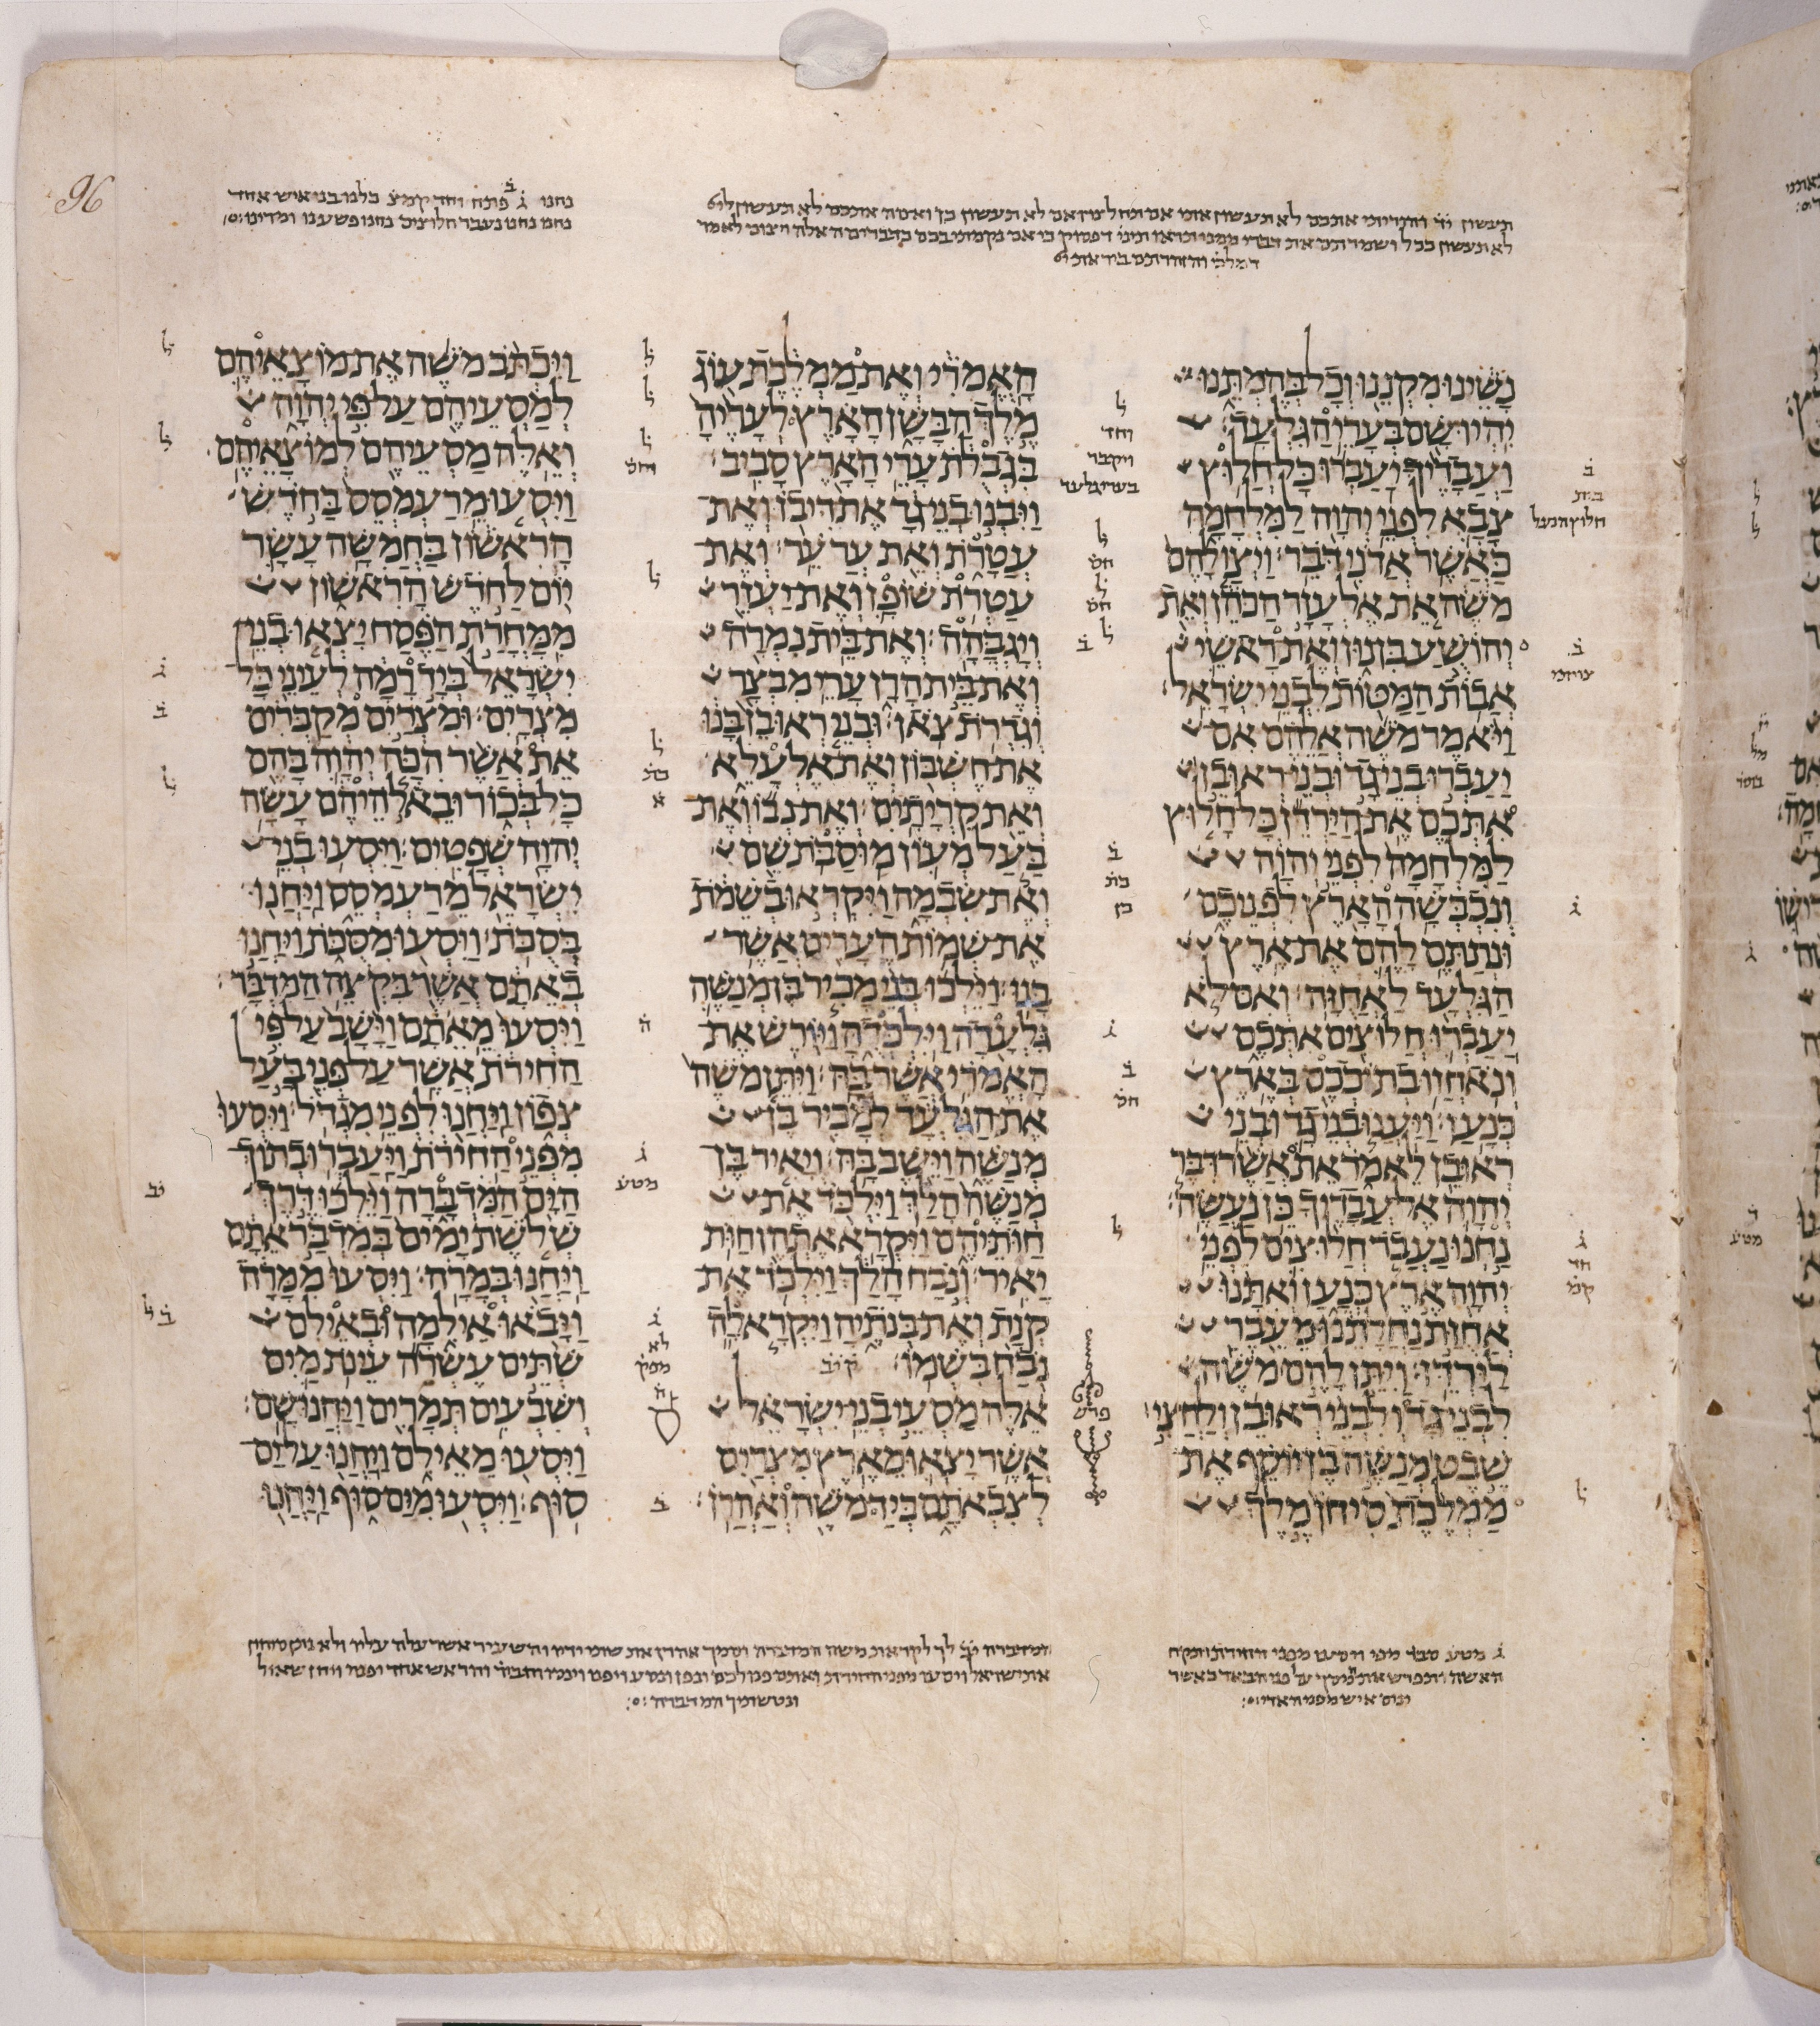 נחנו ג ב פתח וחד קמצ כלנו בני איש אחד
נחנו נחנו נעבר חלוצים נחנו פשענו ומרינו
נשינו מקננו וכל בהמתנו
יהיו שם בערי הגלעד
ועבדיך יעברו כל חלוץ
צבא לפני יהוה למלחמה
כאשר אדני דבר׃ ויצו להם
משה את אלעזר הכהן ואת
יהושע בן נון ואת ראשי
אבות המטות לבני ישראל׃
ויאמר משה אלהם אם
יעברו בני גד ובני ראובן
אתכם את הירדן כל חלוץ
למלחמה לפני יהוה
ונכבשה הארץ לפניכם
ונתתם להם את ארץ
הגלעד לאחזה׃ ואם לא
יעברו חלוצים אתכם
ונאחזו בתככם בארץ
כנען׃ ויענו בני גד ובני
ראובן לאמר את אשר דבר
יהוה אל עבדיך כן נעשה׃
נחנו נעבר חלוצים לפני
יהוה ארץ כנען ואתנו
אחזת נחלתנו מעבר
לירדן׃ ויתן להם משה
לבני גד ולבני ראובן ולחצי
שבט מנשה בן יוסף את
ממלכת סיחן מלך
האמרי ואת ממלכת עוג
מלך הבשן הארץ לעריה
בגבלת ערי הארץ סביב׃
ויבנו בני גד את דיבן ואת
עטרת ואת ערער׃ ואת
עטרת שופן ואת יעזר
ויגבהה׃ ואת בית נמרה
ואת בית הרן ערי מבצר
וגדרת צאן׃ ובני ראובן בנו
את חשבון ואת אלעלא
ואת קריתים׃ ואת נבו ואת
בעל מעון מוסבת שם
ואת שבמה ויקראו בשמת
את שמות הערים אשר
בנו׃ וילכו בני מכיר בן מנשה
גלעדה וילכדה ויורש את
האמרי אשר בה׃ ויתן משה
את הגלעד למכיר בן
מנשה וישב בה׃ ויאיר בן
מנשה הלך וילכד את
חותיהם ויקרא אתהן חות
יאיר׃ ונבח הלך וילכד את
קנת ואת בנתיה ויקרא לה
נבח בשמו׃ קיב
אלה מסעי בני ישראל
אשר יצאו מארץ מצרים
לצבאתם ביד משה ואהרן׃
ויכתב משה את מוצאיהם
למסעיהם על פי יהוה
ואלה מסעיהם למוצאיהם׃
ויסעו מרעמסס בחדש
הראשון בחמשה עשר
יום לחדש הראשון
ממחרת הפסח יצאו בני
ישראל ביד רמה לעיני כל
מצרים׃ ומצרים מקברים
את אשר הכה יהוה בהם
כל בכור ובאלהיהם עשה
יהוה שפטים׃ ויסעו בני
ישראל מרעמסס ויחנו
בסכת׃ ויסעו מסכת ויחנו
באתם אשר בקצה המדבר׃
ויסעו מאתם וישב על פי
החירת אשר על פני בעל
צפון ויחנו לפני מגדל׃ ויסעו
מפני החירת ויעברו בתוך
הים המדברה וילכו דרך
שלשת ימים במדבר אתם
ויחנו במרה׃ ויסעו ממרה
ויבאו אילמה ובאילם
שתים עשרה עינת מים
ושבעים תמרים ויחנו שם׃
ויסעו מאילם ויחנו על ים
סוף׃ ויסעו מים סוף ויחנו